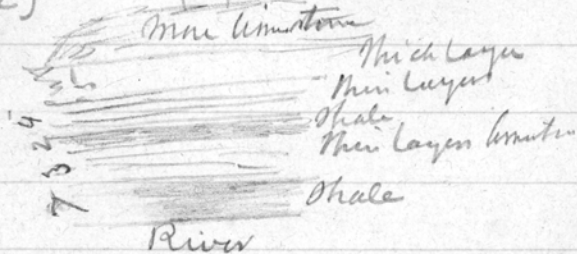 More limestone
Thick Layer
Thin Layers
Shale
Thin Layers limestone
Shale
4
2
3
7
River